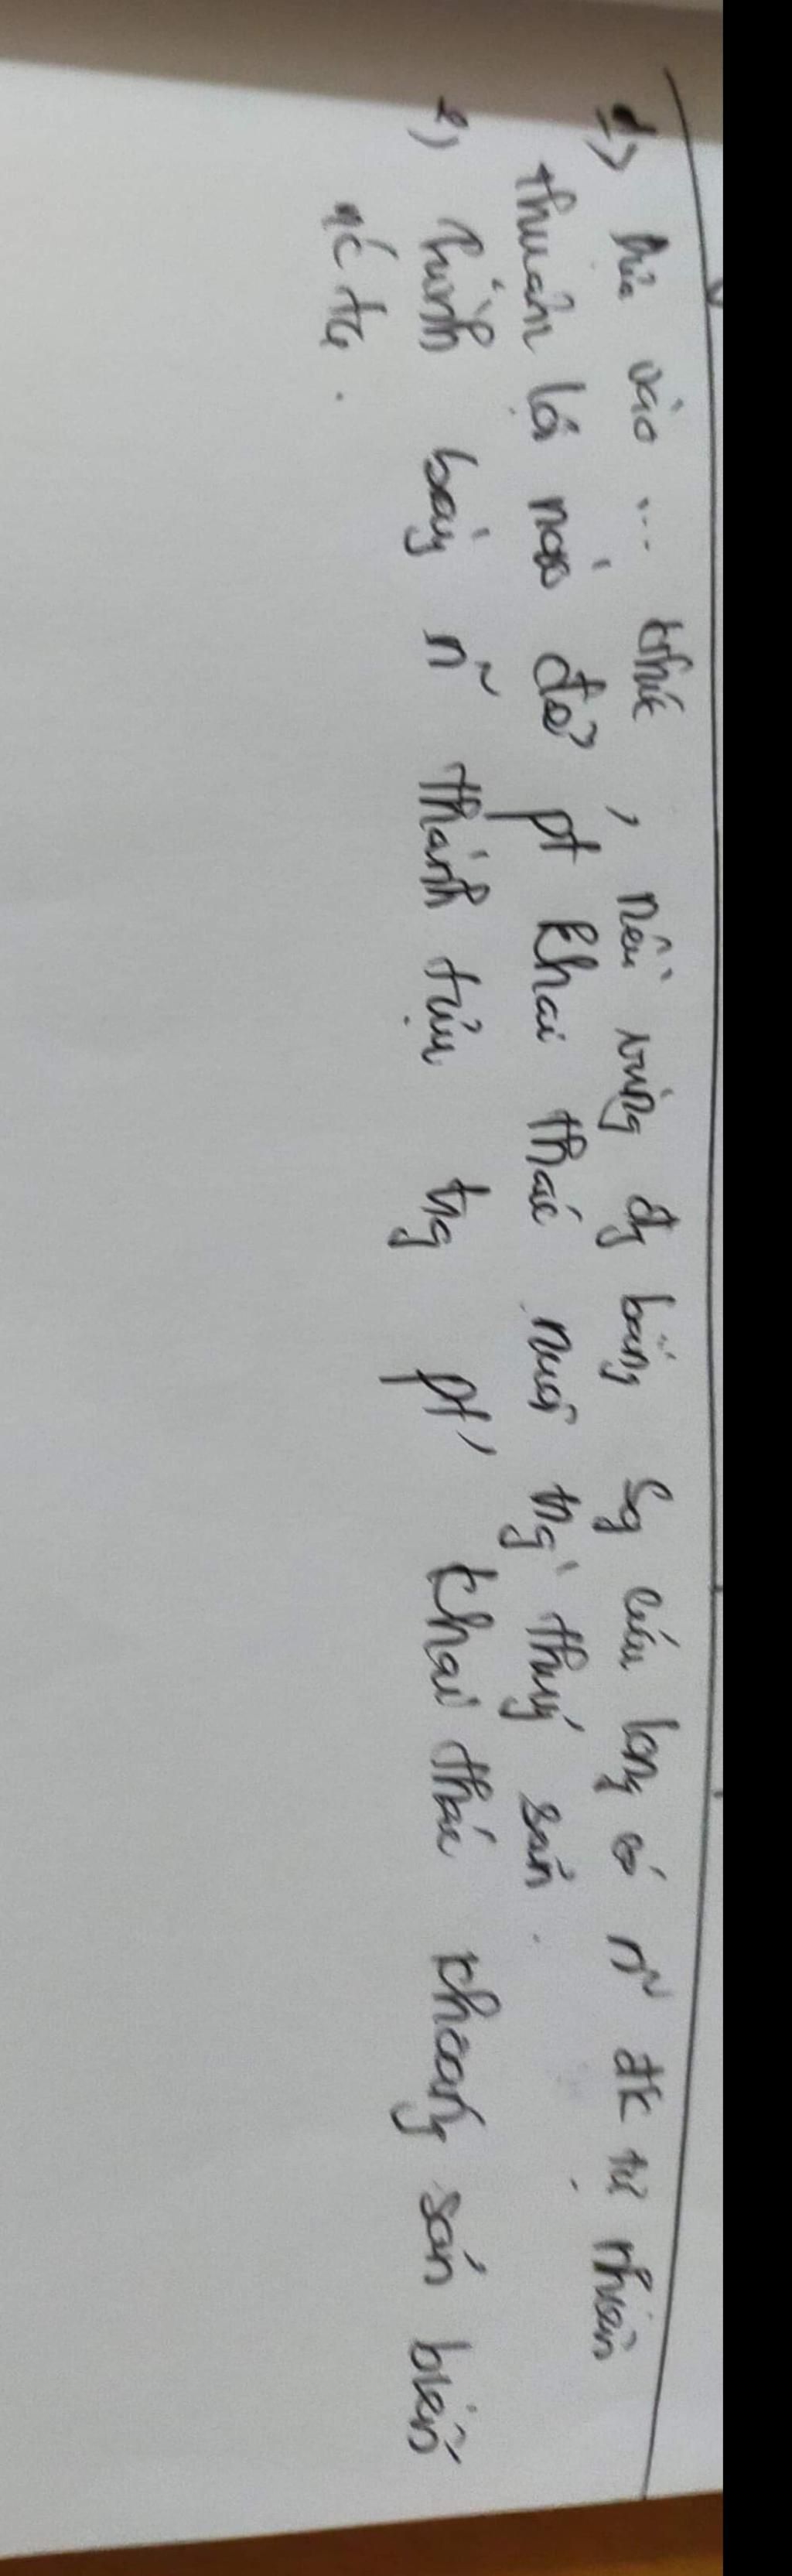 d) Dựa vào ... thức, nêu vùng đg bằng sg cửu long có n~ đk tự nhiên
thuận lợi nào để pt khai thác nuôi trg thuỷ sản.
e) trình bày n~ thành tựu trg pt khai thác khoáng sản biển
nc ta.